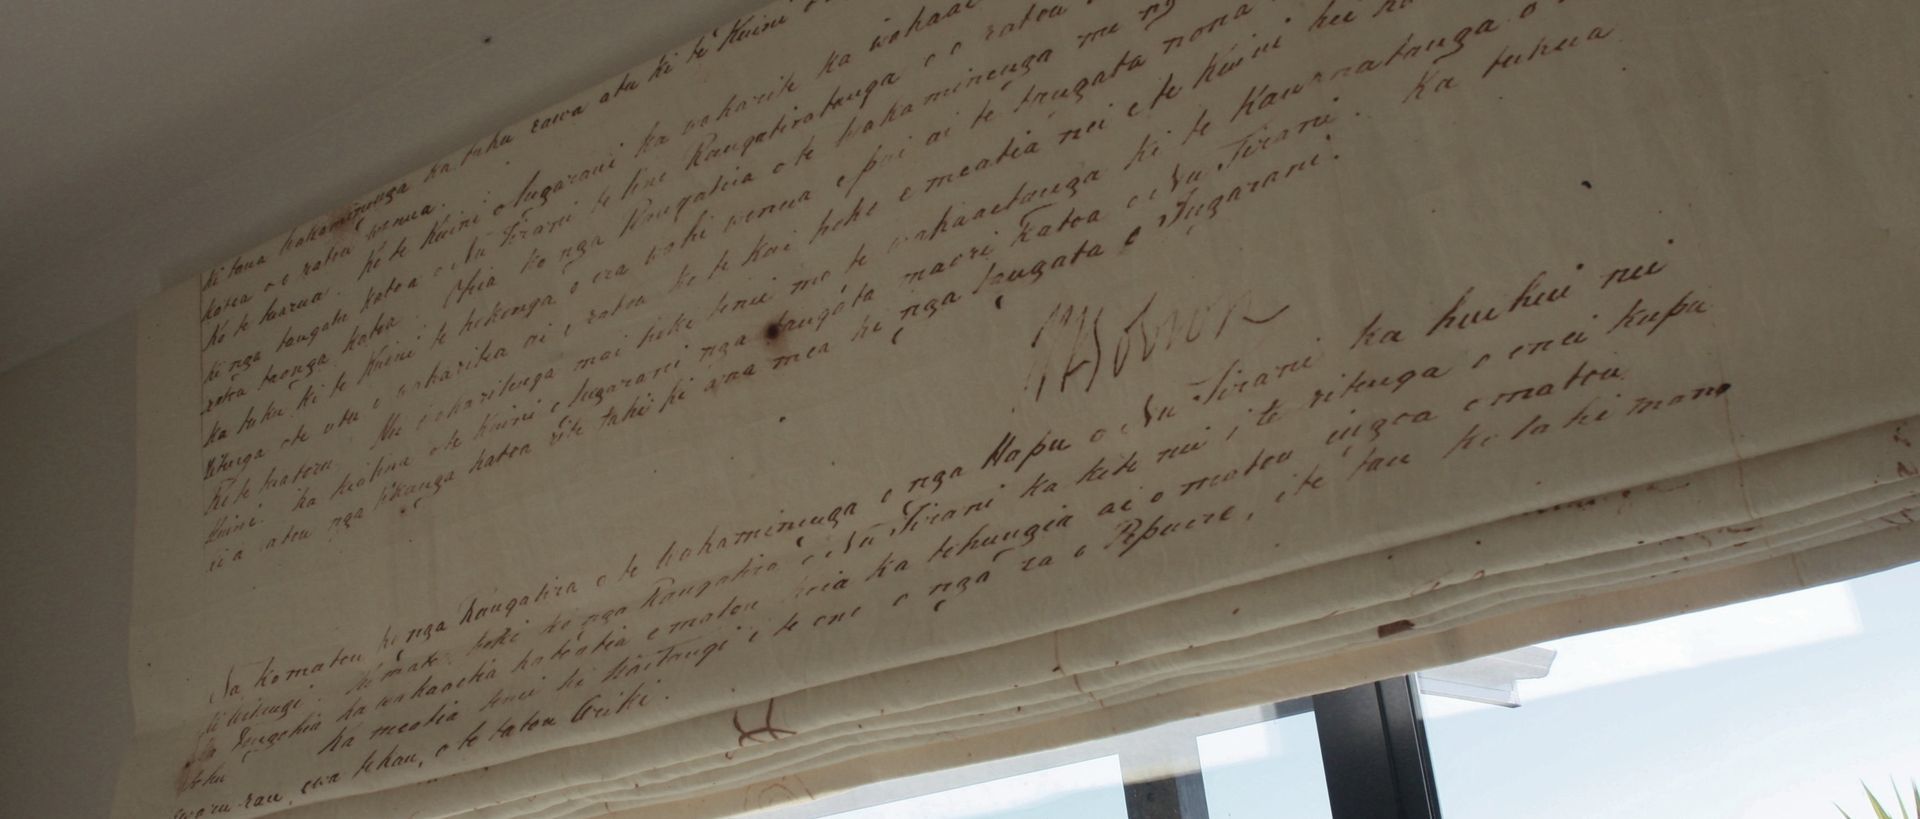 ki tona wakaminenga ka tuku rawa atu ki te Kuini
katoa o o ratou wenua.
Ko te tuarua. Ko te Kuini o Ingarani ka wakarite ka wakaae
ki nga tangata katoa o Nu Tirani te tino Rangatiratanga o o ratou
ratou taonga katoa. Otiia ko nga Rangatira o te wakaminenga me nga
ka tuku ki te Kuini te hokonga o era wahi wenua e pai ai te tangata nona
ritenga o te utu e wakaritea ai e ratou ko te kai hoko e meatia nei e te Kuini hei kai
Ko te tuatoru. Hei wakaritenga mai hoki tenei mo te wakaaetanga ki te Kawanatanga o
Kuini. Ka tiakina e te Kuini o Ingarani nga tangata maori katoa o Nu Tirani. Ka tukua
ki a ratou nga tikanga katoa rite tahi ki ana mea ki nga tangata o Ingarani.
W Hobson
Na ko matou ko nga Rangatira o te Wakaminenga o nga Hapu o Nu Tirani ka huihui nei
ki Waitangi. Ko matou hoki ko nga Rangatira o Nu Tirani ka kite nei i te ritenga o enei kupu
ka tangohia ka wakaaetia katoatia e matou koia ka tohungia ai o matou ingoa o matou
tohu
ka meatia tenei ki Waitangi i te ono o nga ra o Pepueri, i te tau kotahi mano
e waru rau, e wa tekau, o to tatou Ariki.